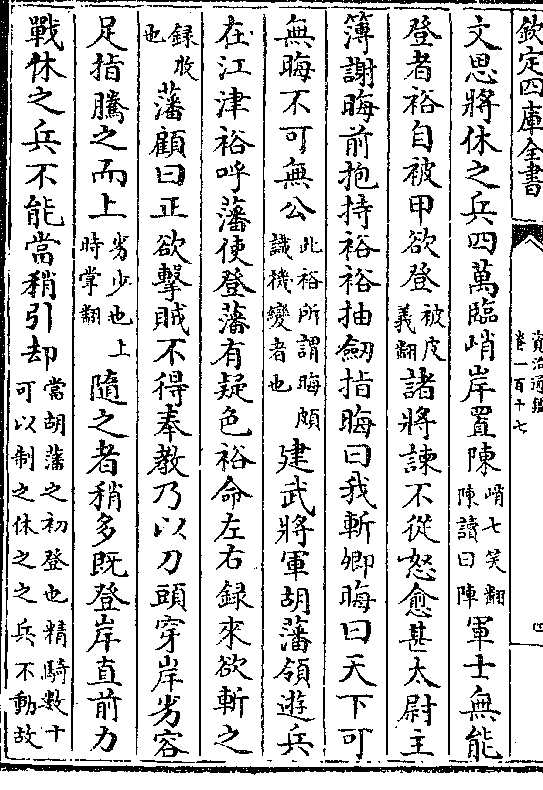 欽定四庫全書
資治通鑑
卷一百十七
四
文思將休之兵四萬臨峭岸置陳峭七笑翻陳讀曰陣軍士無能
登者裕自被甲欲登被皮義翻諸將諫不從怒愈甚太尉主
簿謝晦前抱持裕裕抽劒指晦曰我斬卿晦曰天下可
無晦不可無公此裕所謂晦頗識機變者也建武將軍胡藩領遊兵
在江津裕呼藩使登藩有疑色裕命左右録來欲斬之
録收也藩顧曰正欲擊賊不得奉教乃以刀頭穿岸劣容
足指騰之而上劣少也上時掌翻隨之者稍多既登岸直前力
戰休之兵不能當稍引却當胡藩之初登也精騎數十可以制之休之之兵不動故